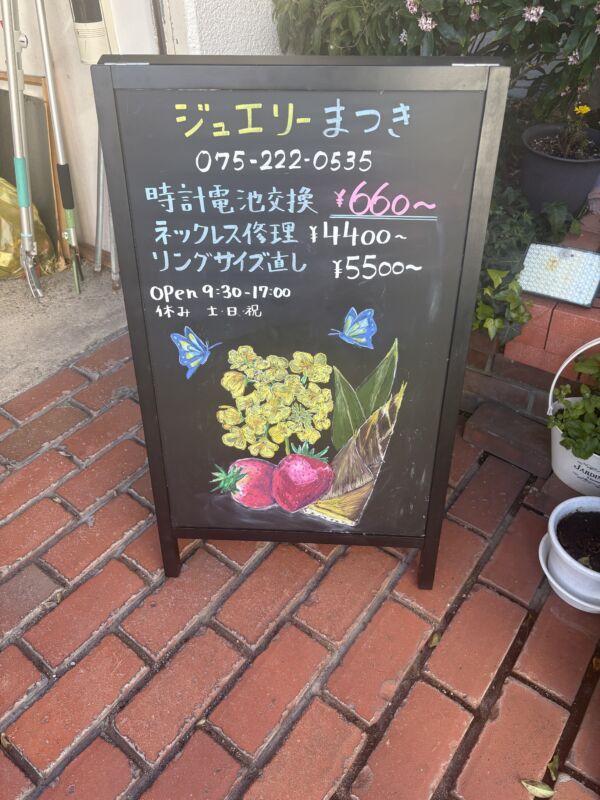 ジュエリーまつき
075-222-0535
時計電池交換 ¥660～
ネックレス修理 ¥4400～
リングサイズ直し ¥5500～
OPen 9:30-17:00
休み 土・日・祝
JARDIN